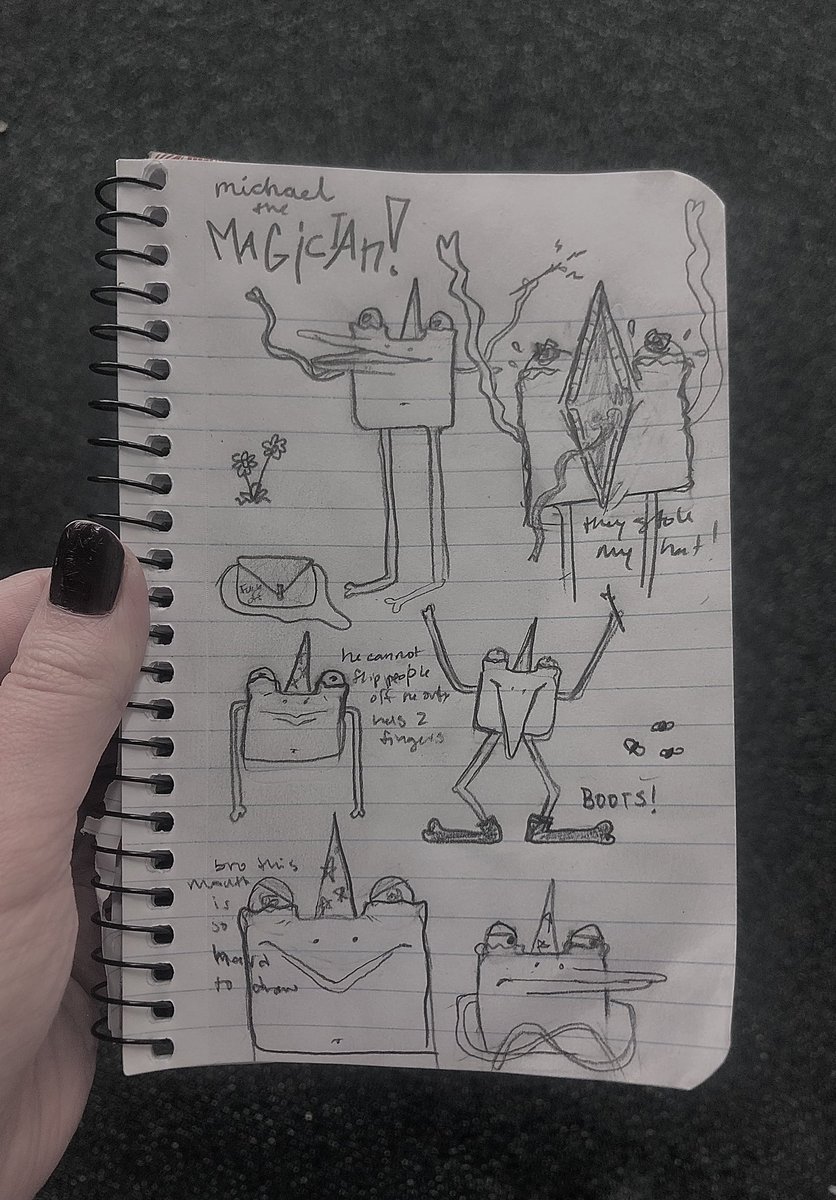 michael
the
MAGicIAn!
they stole
my hat!
Fuck
off
he cannot
flip people
off he only
has 2
fingers
BOOTS!
bro this
mouth
is
so
hard
to draw